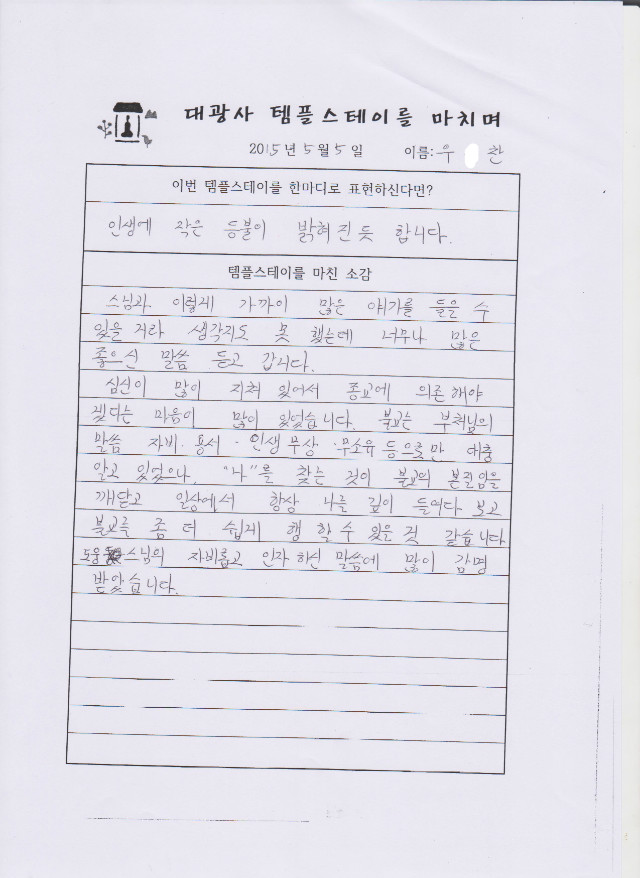 대광사 템플스테이를 마치며
2015년 5월 5일 이름: 우 찬
이번 템플스테이를 한마디로 표현하신다면?
인생에 작은 등불이 밝혀진듯 합니다.
템플스테이를 마친 소감
스님과 이렇게 가까이 많은 얘기를 들을 수
있을 거라 생각지도 못 했는데 너무나 많은
좋으신 말씀 듣고 갑니다.
심신이 많이 지쳐 있어서 종교에 의존해야
겠다는 마음이 많이 있었습니다. 불교는 부처님의
말씀 자비·용서·인생무상·무소유 등으로만 대충
알고 있었으나, "나"를 찾는 것이 불교의 본질임을
깨닫고 일상에서 항상 나를 깊이 들여다 보고
불교를 좀 더 쉽게 행 할 수 있을 것 같습니다
도웅 스님의 자비롭고 인자하신 말씀에 많이 감명
받았습니다.